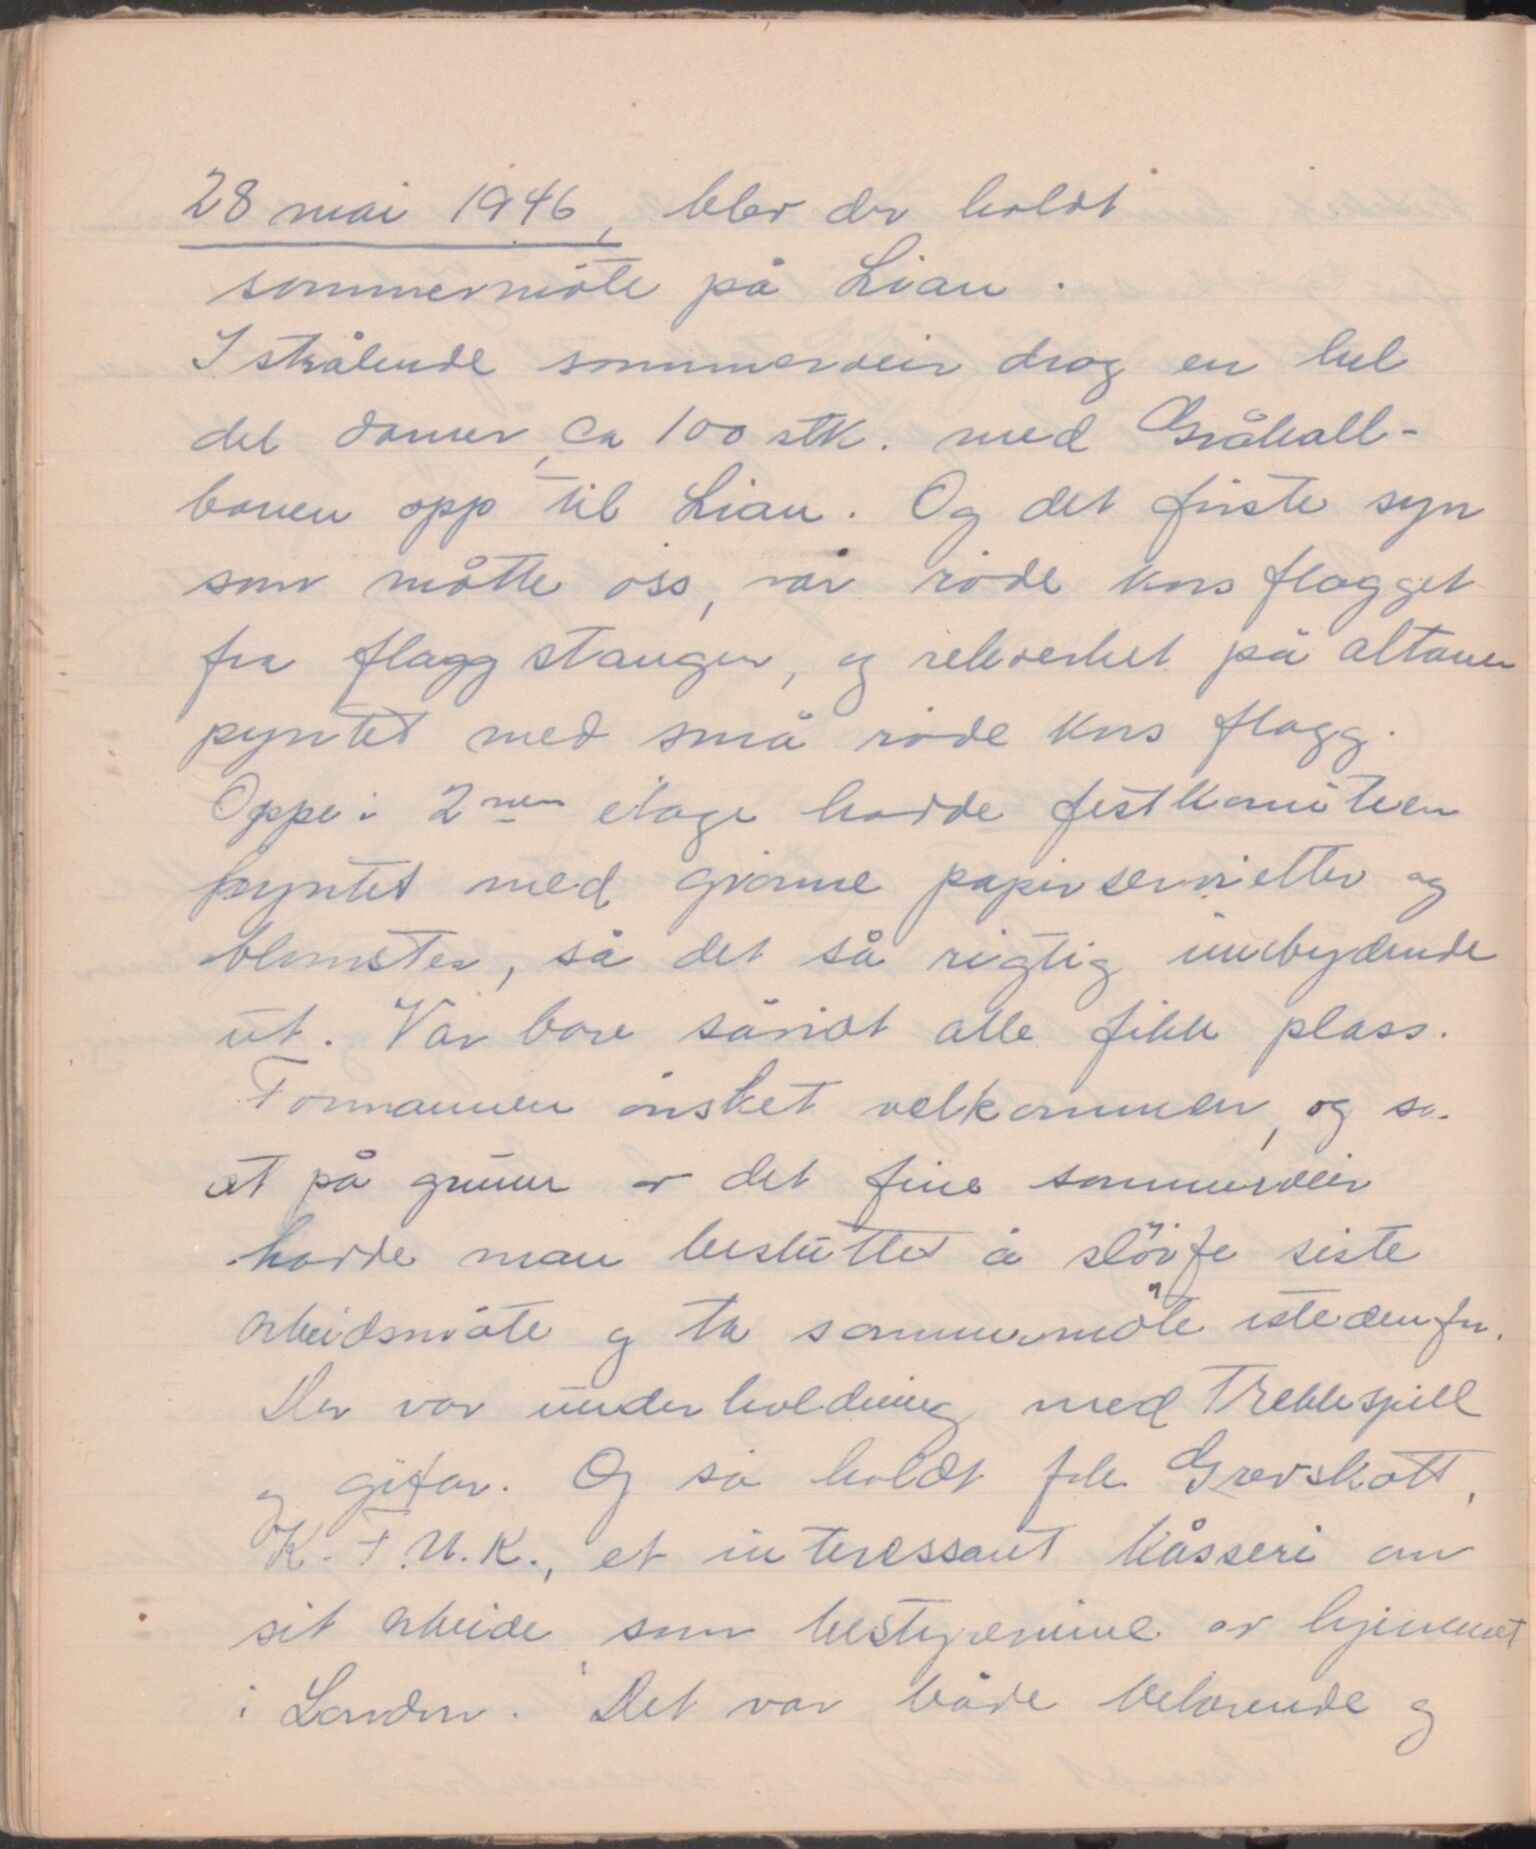 28 mai 1946, blev der holdt
sommermøte på Lian.
I strålende sommerveir drog en hel
del damer, ca 100 stk. med Gråkall-
banen opp til Lian. Og det første syn
som møtte oss, var røde kors flagget
fra flaggstangen, og rekverket på altanen
pyntet med små røde kors flagg.
Oppe i 2nen etage hadde festkomiteen
pyntet med grønne papirservietter og
blomster, så det så rigtig innbydende
ut. Var bare såvidt alle fikk plass.
Formannen ønsket velkommen, og sa
at på grunn av det fine sommerveir
hadde man besluttet å sløife siste
arbeidsmøte og ta sommermøte istedenfor.
Der var underholdning med Trekkspill
og gitar. Og så holdt frk. Grevskott,
K.F.U.K., et interessant kåsseri om
sit arbeide, som bestyrerinne av hjemmet
i London. Det var både belærende og